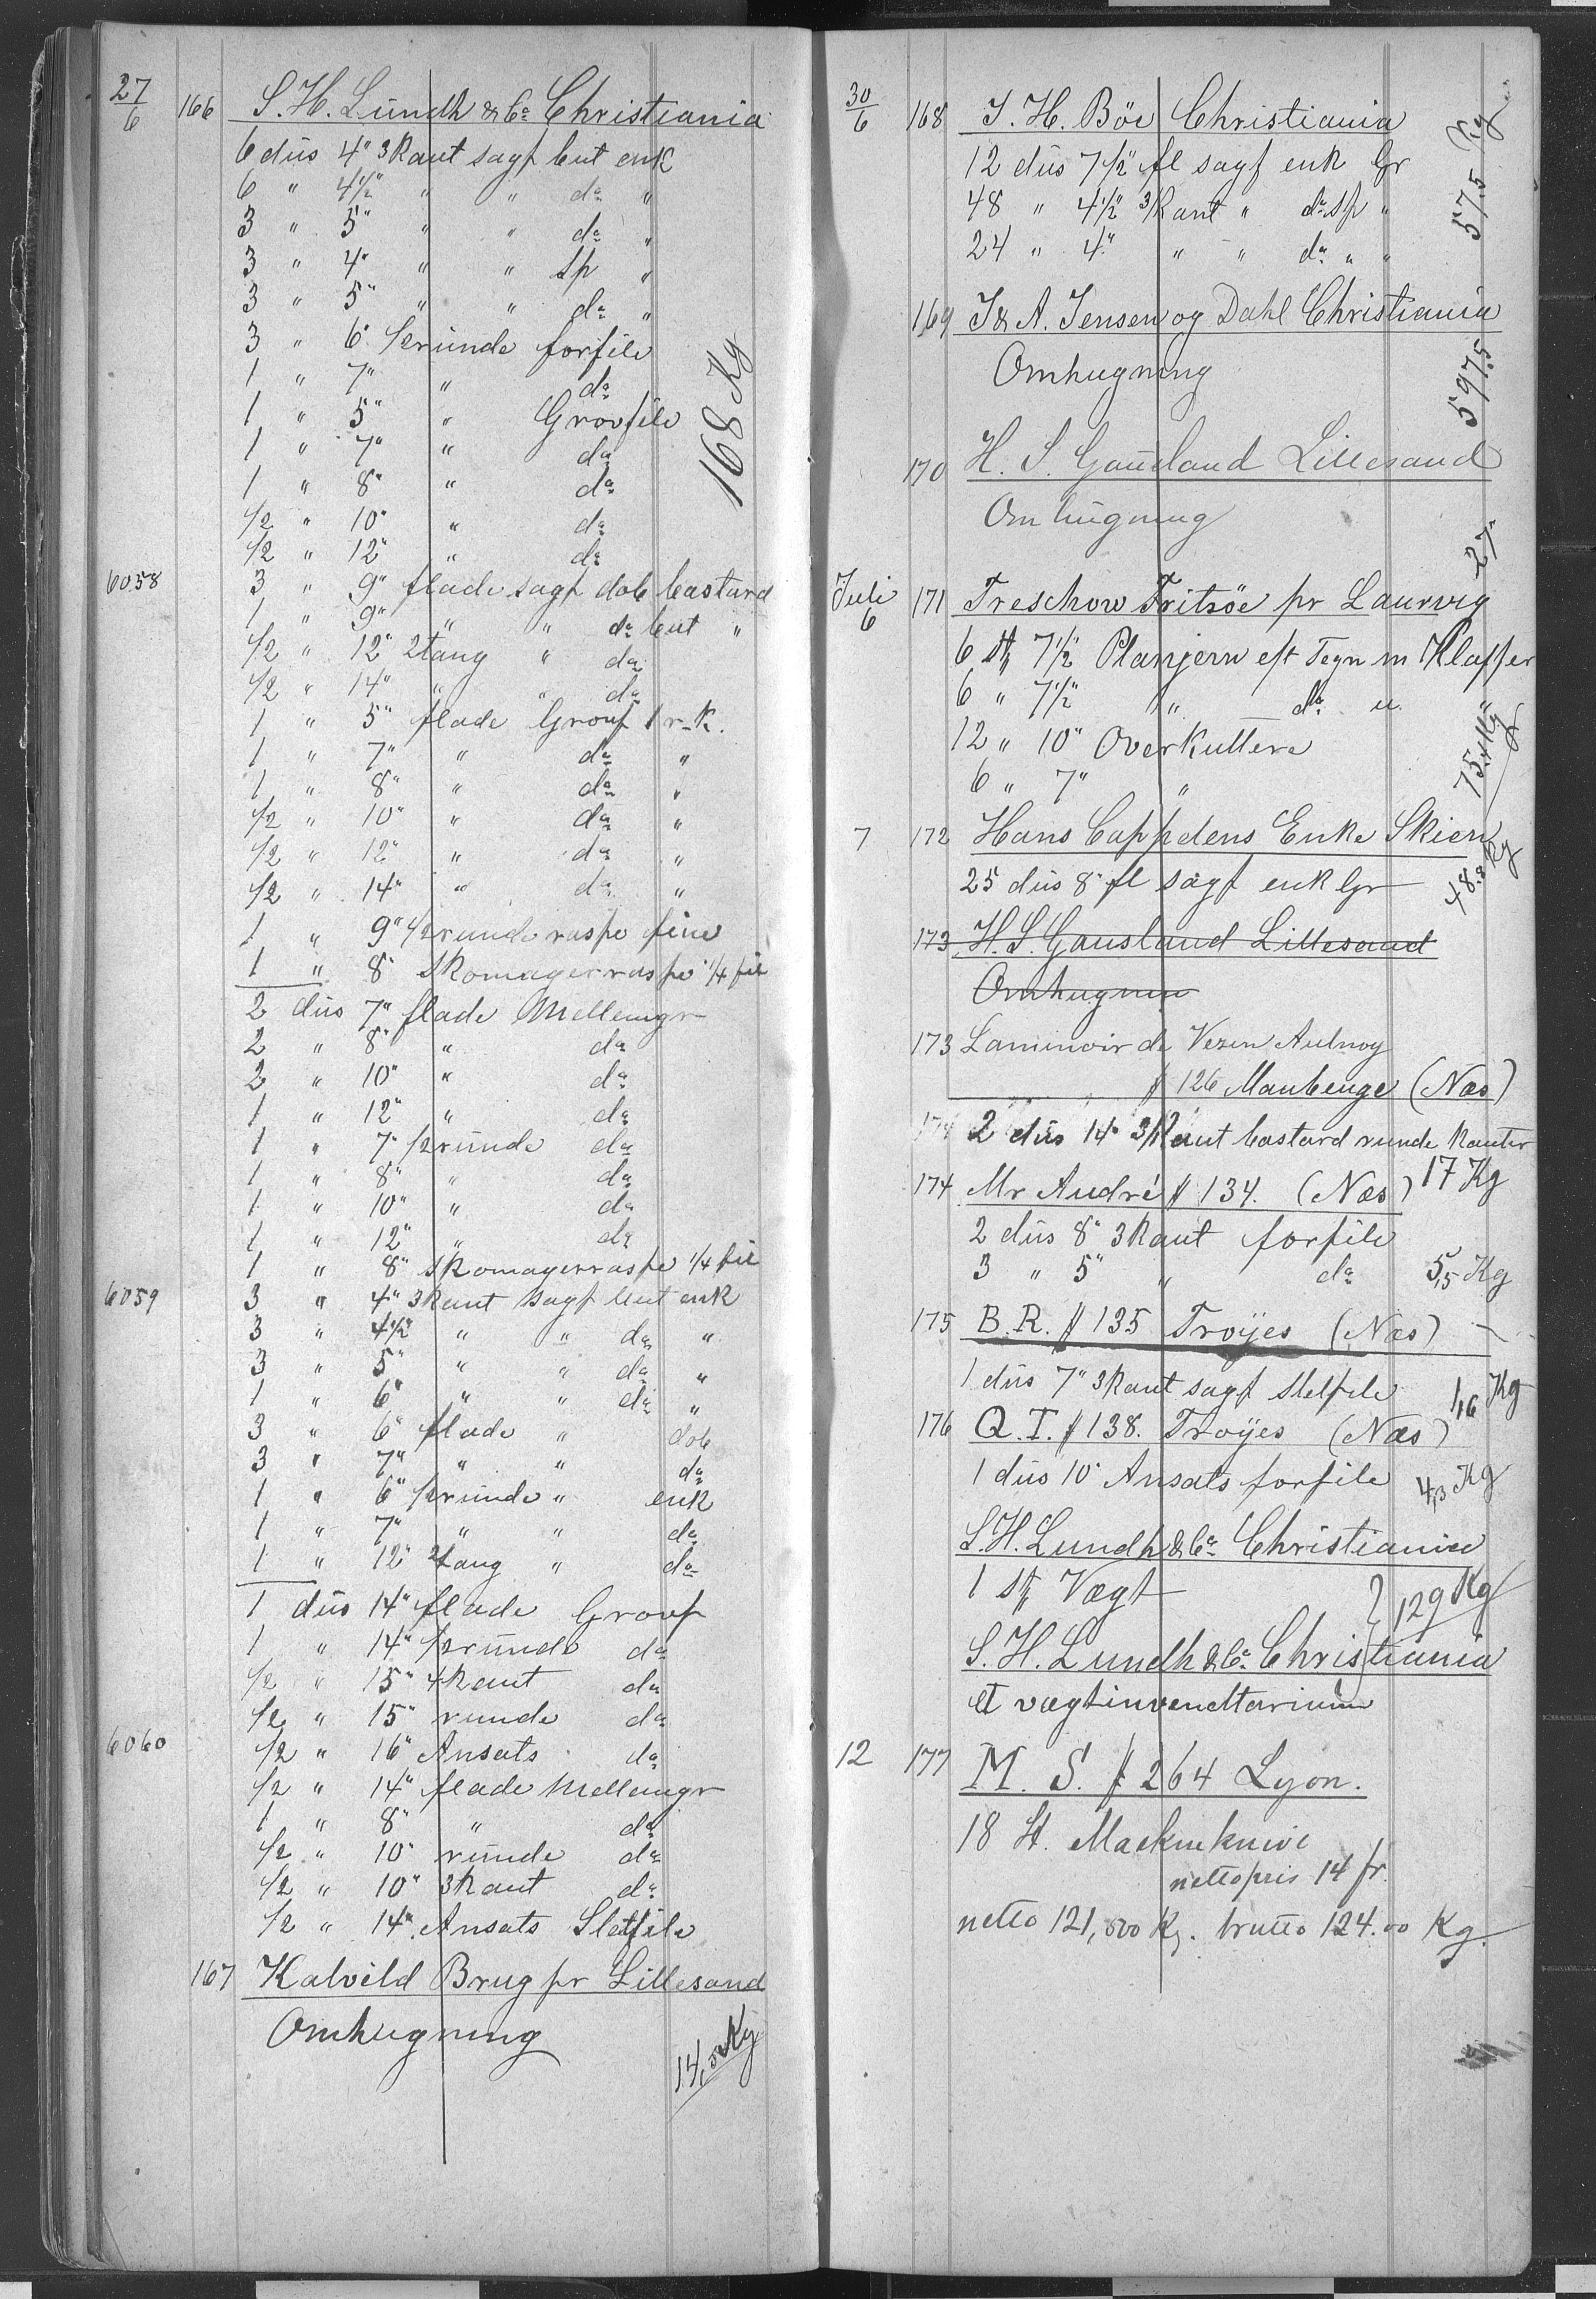 27/6 166 S. H. Lundh & Co Christiania
6 düs 4" 3kant sagf but enk
6 " 4½" " " do "
3 " 5" " " do "
3 " 4" " " sp "
3 " 5" " " do "
3 " 6" ½runde forfile
1 " 7" " do
1 " 5" " Grovfile
1 " 7" " do
168 Kg
1 " 8" " do
½ " 10" " do
½ " 12" " do
6058 3 " 9" flade sagf dob bastard
1 " 9" " " do but "
½ " 12" 2tang " do
½ " 14" " " do
1 " 5" flade Grovf 1 r-k.
1 " 7" " do "
1 " 8" " do "
½ " 10" " do "
½ " 12" " do "
½ " 14" " do "
1 " 9" ½runde raspe fine
1 " 8" Skomagerraspe ¼ fil
2 düs 7" flade Mellemgr
2 " 8" " do
2 " 10" " do
1 " 12" " do
1 " 7" ½runde do
1 " 8" " do
1 " 10" " do
1 " 12" " do
1 " 8" Skomagerraspe ¼ fil
6059 3 " 4" 3kant sagf but enk
3 " 4½" " " do "
3 " 5" " " do "
1 " 6" " " do "
3 " 6" flade " dob
3 " 7" " " do
1 " 6" ½runde " enk
1 " 7" " " do
1 " 12" 2tang " do
1 düs 14" flade Grovf
1 " 14" ½runde do
½ " 15" 4kant do
½ " 15" runde do
6060 ½ " 16" Ansats do
½ " 14" flade Mellemgr
1 " 8" " do
½ " 10" runde do
½ " 10" 3kant do
½ " 14" Ansats Sletfile
167 Kalvild Brug pr Lillesand
Omhugning
14,5 Kg
30/6 168 J. H. Böe Christiania
12 düs 7½" fl sagf enk Gr
48 " 4½" 3kant " do sp "
24 " 4" " " do " "
57.5 Kg
169 J & A. Jensen og Dahl Christiania
Omhugning
597.5
170 H. S. Gausland Lillesand
Omhugning
27"
Juli 6 171 Treschow Fritsöe pr Laurvig
6 st 7½" Planjern eft Tegn m Klaffer
6 " 7½" " do u. "
12 " 10" Overkuttere
6 " 7" "
7 172 Hans Cappelens Enke Skien
25 düs 8" fl sagf enk Gr
48.8 Kg
173 H. S. Gausland Lillesand
Omhugning
173 Laminoir de Vezin Aulnoy
# 126 Maubeuge (Næs)
2 düs 14" 3kant bastard runde kanter
17 Kg
174 Mr André # 134. (Næs)
2 düs 8" 3kant forfile
3 " 5" " do 5,5 Kg
175 B. R. # 135 Troyes (Næs)
1 düs 7" 3kant sagf sletfile 1,6 Kg
176 Q. T. # 138. Troyes (Næs)
1 düs 10" Ansats forfile 4,3 Kg
S. H. Lundh & Co Christiania
1 st Vægt
129 Kg
S. H. Lundh & Co Christiania
et vægtinvendtarium
12 177 M. S. # 264 Lyon.
18 st. Maskineknive
nettopris 14 fr.
netto 121,500 Kg. brutto 124.00 Kg.